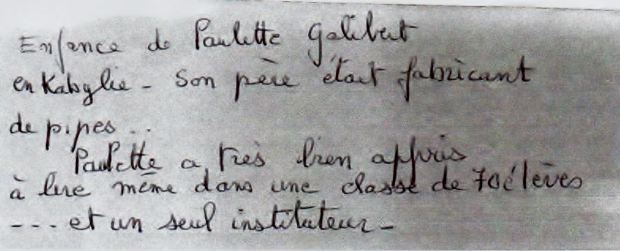 Enfance de Paulette Galibert
en Kabylie - Son père était fabricant
de pipes..
Paulette a très bien appris
à lire même dans une classe de 70 élèves
--- et un seul instituteur -